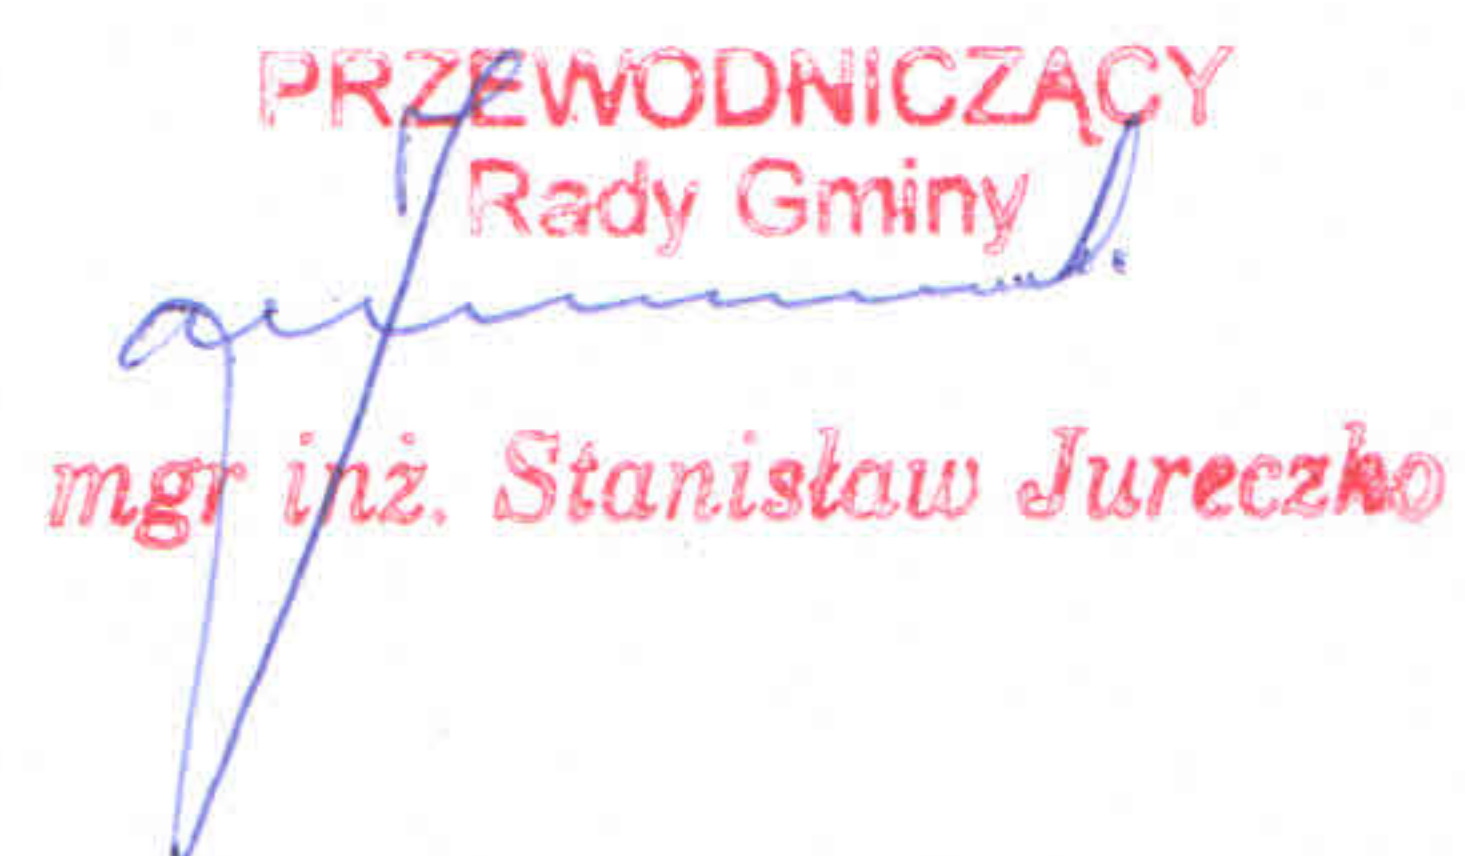 PRZEWODNICZĄCY
Rady Gminy
mgr inż. Stanisław Jureczko